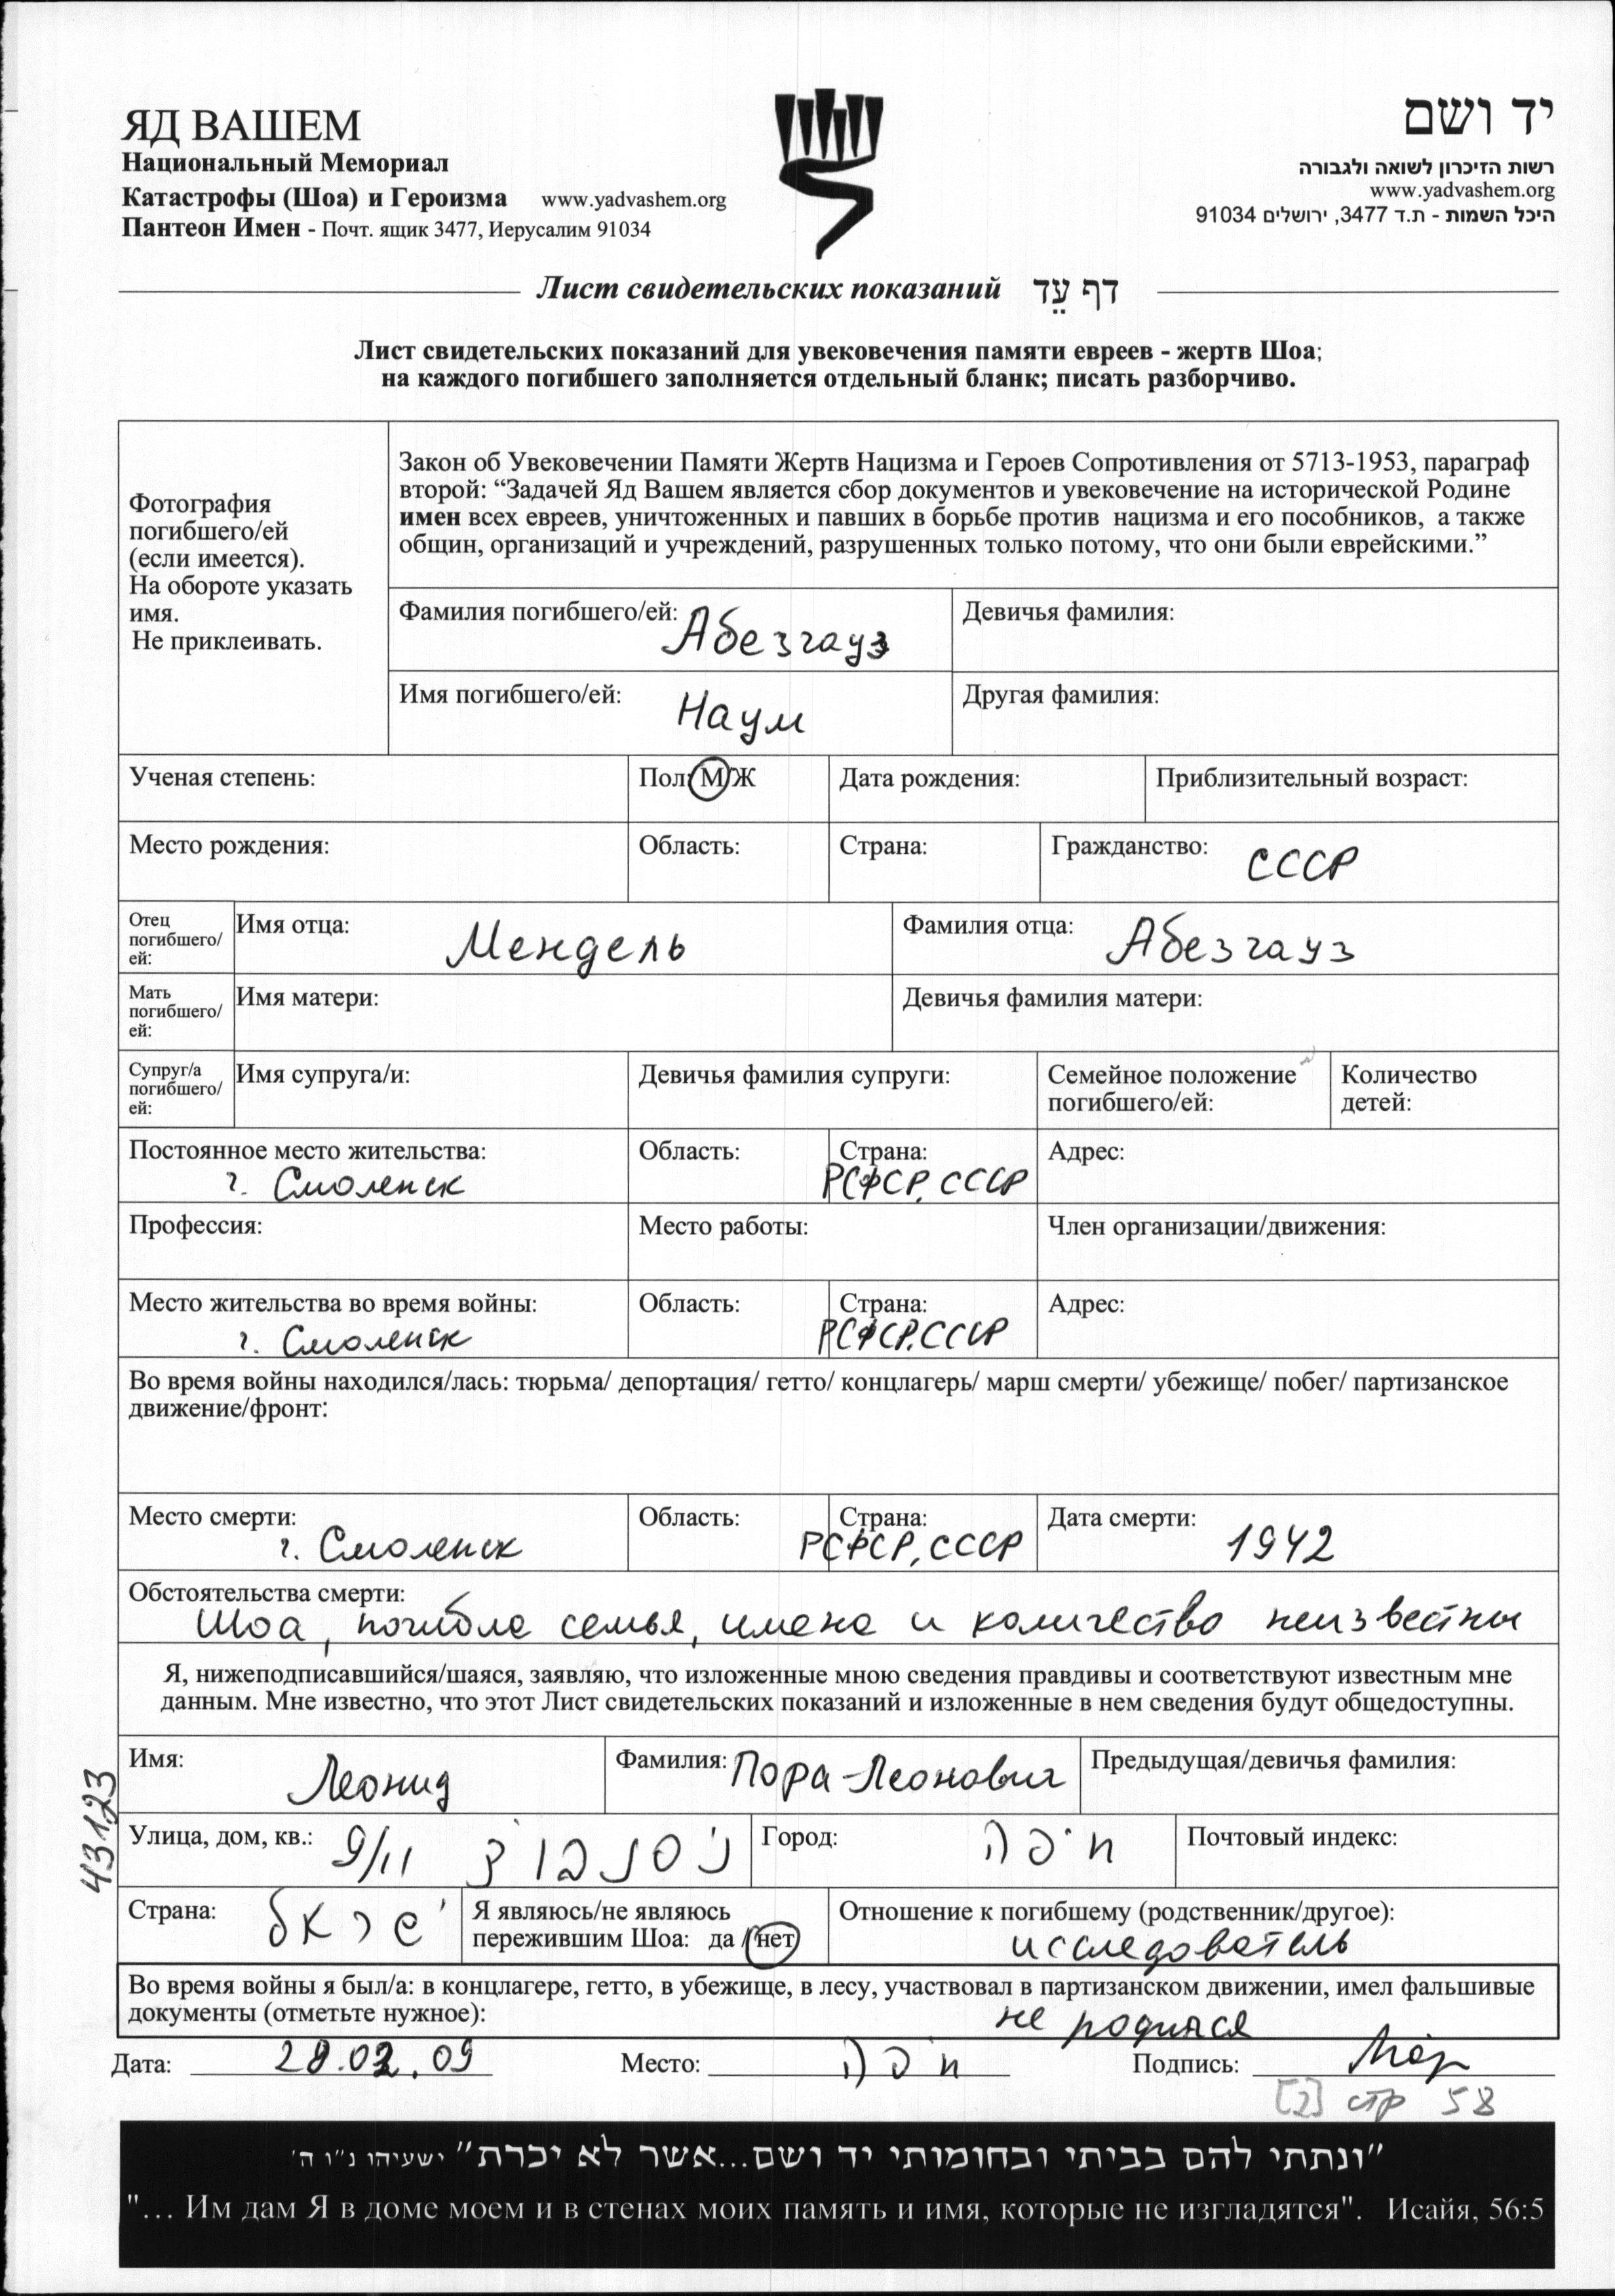 ЯД ВАШЕМ
Национальный Мемориал
Катастрофы (Шоа) и Героизма www.yadvashem.org
Пантеон Имен - Почт. ящик 3477, Иерусалим 91034
יד ושם
רשות הזיכרון לשואה ולגבורה
www.yadvashem.org
היכל השמות - ת.ד 3477, ירושלים 91034
Лист свидетельских показаний דף עֵד
Лист свидетельских показаний для увековечения памяти евреев - жертв Шоа;
на каждого погибшего заполняется отдельный бланк; писать разборчиво.
Фотография
погибшего/ей
(если имеется).
На обороте указать
имя.
Не приклеивать.
Закон об Увековечении Памяти Жертв Нацизма и Героев Сопротивления от 5713-1953, параграф
второй: “Задачей Яд Вашем является сбор документов и увековечение на исторической Родине
имен всех евреев, уничтоженных и павших в борьбе против нацизма и его пособников, а также
общин, организаций и учреждений, разрушенных только потому, что они были еврейскими.”
Фамилия погибшего/ей: Абезгауз Девичья фамилия:
Имя погибшего/ей: Наум Другая фамилия:
Ученая степень: Пол: М/Ж Дата рождения: Приблизительный возраст:
Место рождения: Область: Страна: Гражданство: СССР
Отец
погибшего/
ей:
Имя отца: Мендель Фамилия отца: Абезгауз
Мать
погибшего/
ей:
Имя матери: Девичья фамилия матери:
Супруг/а
погибшего/
ей:
Имя супруга/и: Девичья фамилия супруги: Семейное положение
погибшего/ей:
Количество
детей:
Постоянное место жительства: Область: Страна: Адрес:
г. Смоленск РСФСР, СССР
Профессия: Место работы: Член организации/движения:
Место жительства во время войны: Область: Страна: Адрес:
г. Смоленск РСФСР, СССР
Во время войны находился/лась: тюрьма/ депортация/ гетто/ концлагерь/ марш смерти/ убежище/ побег/ партизанское
движение/фронт:
Место смерти: Область: Страна: Дата смерти: 1942
г. Смоленск РСФСР, СССР
Обстоятельства смерти:
Шоа, погибла семья, имена и количество неизвестны
Я, нижеподписавшийся/шаяся, заявляю, что изложенные мною сведения правдивы и соответствуют известным мне
данным. Мне известно, что этот Лист свидетельских показаний и изложенные в нем сведения будут общедоступны.
Имя: Леонид Фамилия: Пора-Леонович Предыдущая/девичья фамилия:
43123
Улица, дом, кв.: 9/11 Город: חיפה Почтовый индекс:
Страна: ישראל Я являюсь/не являюсь
пережившим Шоа: да / нет
Отношение к погибшему (родственник/другое):
исследователь
Во время войны я был/а: в концлагере, гетто, в убежище, в лесу, участвовал в партизанском движении, имел фальшивые
документы (отметьте нужное): не родился
Дата: 28.02.09 Место: חיפה Подпись:
[2] стр 58
"ונתתי להם בביתי ובחומותי יד ושם...אשר לא יכרת" ישעיהו נ"ו ה'
"... Им дам Я в доме моем и в стенах моих память и имя, которые не изгладятся". Исайя, 56:5